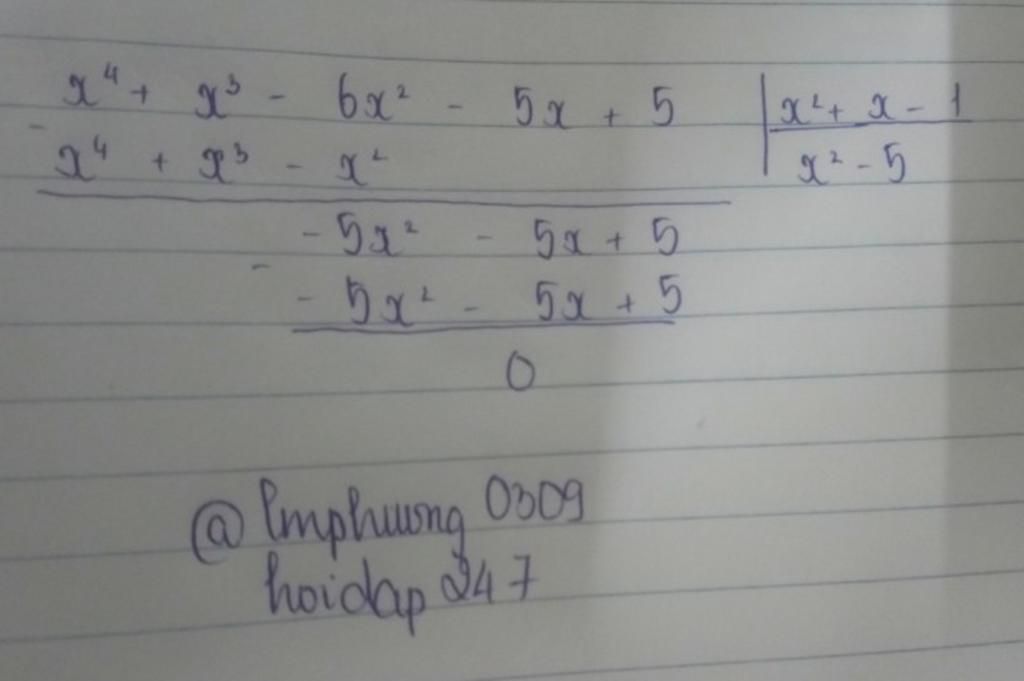 x⁴ + x³ - 6x² - 5x + 5 | x² + x - 1
- x⁴ + x³ - x² | x² - 5
- 5x² - 5x + 5
- - 5x² - 5x + 5
0
@lmphuong 0309
hoidap 247